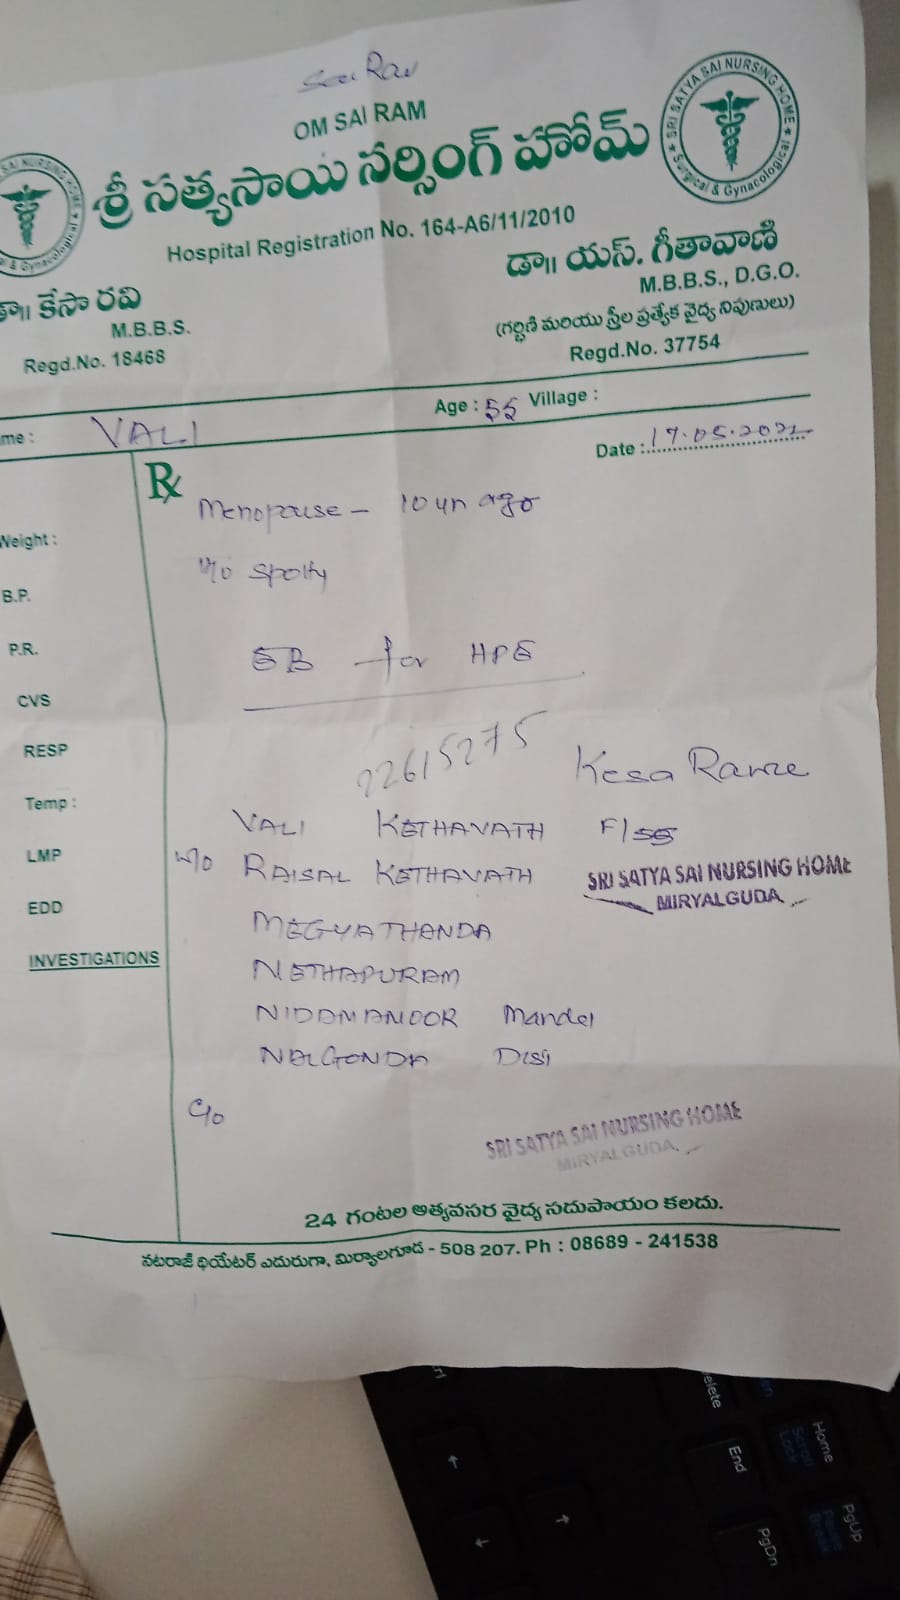 Sai Ram
OM SAI RAM
శ్రీ సత్యసాయి నర్సింగ్ హోమ్
SRI SATYA SAI NURSING HOME
Surgical & Gynacological
Hospital Registration No. 164-A6/11/2010
డా॥ కేసా రవి
M.B.B.S.
Regd.No. 18468
డా॥ యస్. గీతావాణి
M.B.B.S., D.G.O.
(గర్భిణి మరియు స్త్రీల ప్రత్యేక వైద్య నిపుణులు)
Regd.No. 37754
me : VALI Age : 55 Village :
Date : 17.05.2022
Rx
Menopause - 10 yr ago
spotty
Weight :
B.P.
P.R.
CVS
RESP
Temp :
LMP
EDD
INVESTIGATIONS
EB for HPE
22615275
Kesa
VALI KETHAVATH F/55
W/O RAISAL KETHAVATH
SRI SATYA SAI NURSING HOME
MIRYALGUDA
MEGYATHANDA
NETHAPURAM
NIDAMANOOR Mandal
NALGONDA Dist
C/o
SRI SATYA SAI NURSING HOME
MIRYALGUDA
24 గంటల అత్యవసర వైద్య సదుపాయం కలదు.
నటరాజ్ థియేటర్ ఎదురుగా, మిర్యాలగూడ - 508 207. Ph : 08689 - 241538
Home
Scroll Lock
End
PgUp
PgDn